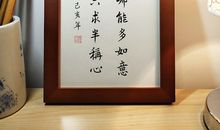 哪能多如意
只求半稱心
己亥年